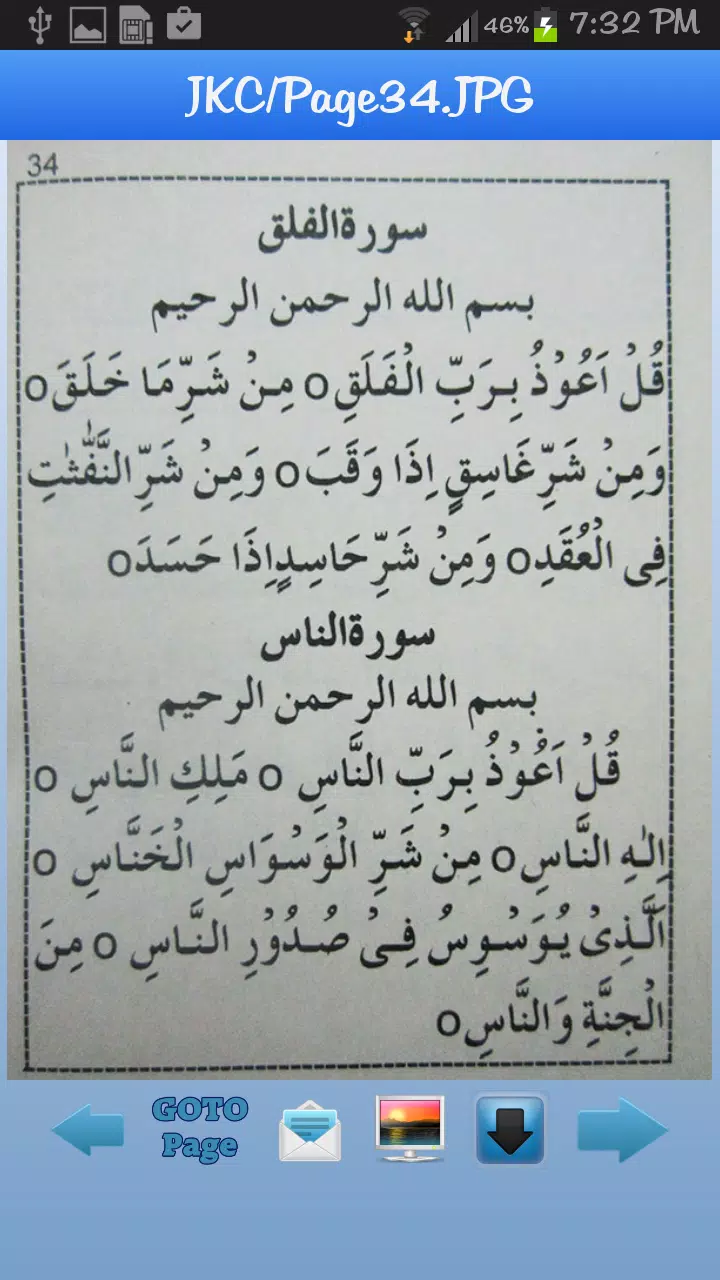 46% 7:32 PM
JKC/Page34.JPG
34
سورةالفلق
بسم الله الرحمن الرحيم
قُلْ اَعُوْذُ بِرَبِّ الْفَلَقِo مِنْ شَرِّمَا خَلَقَo
وَمِنْ شَرِّغَاسِقٍ اِذَا وَقَبَo وَمِنْ شَرِّالنَّفّٰثٰتِ
فِى الْعُقَدِo وَمِنْ شَرِّحَاسِدٍاِذَا حَسَدَo
سورةالناس
بسم الله الرحمن الرحيم
قُلْ اَعُوْذُ بِرَبِّ النَّاسِ o مَلِكِ النَّاسِ o
اِلٰهِ النَّاسِo مِنْ شَرِّ الْوَسْوَاسِ الْخَنَّاسِ o
اَلَّذِىْ يُوَسْوِسُ فِىْ صُدُوْرِ النَّاسِ o مِنَ
الْجِنَّةِ وَالنَّاسِo
GOTO
Page